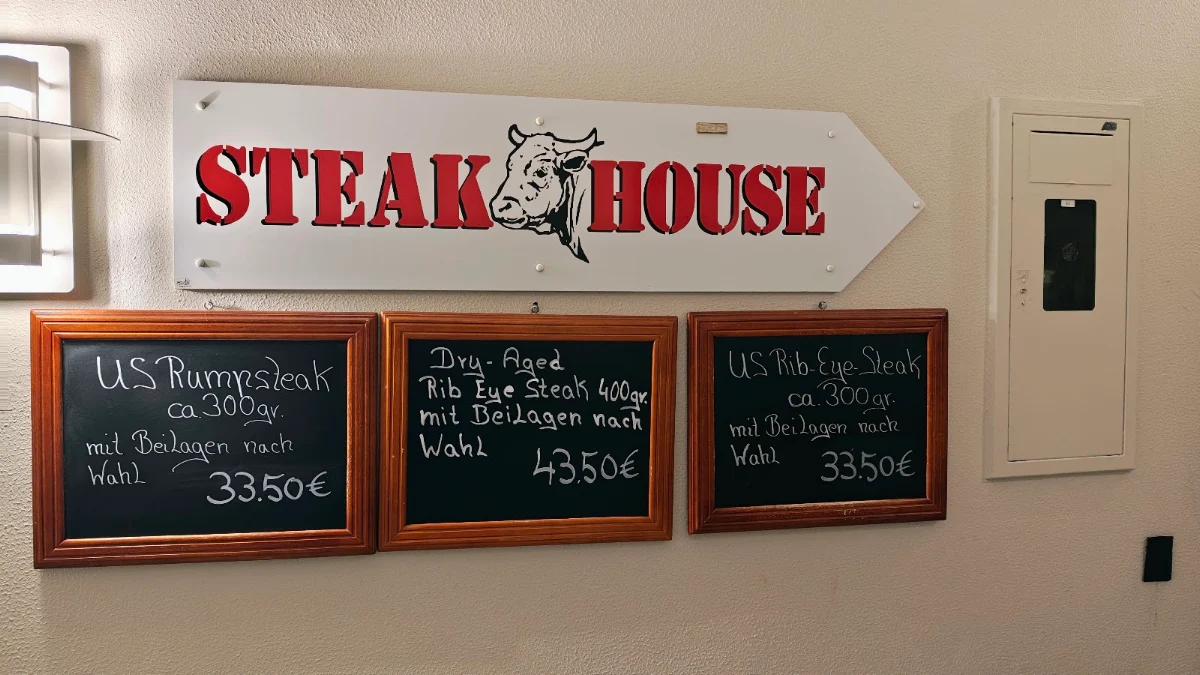 STEAK HOUSE
US Rumpsteak
ca. 300gr.
mit Beilagen nach
Wahl
33.50€
Dry-Aged
Rib Eye Steak 400gr.
mit Beilagen nach
Wahl
43.50€
US Rib-Eye-Steak
ca. 300gr.
mit Beilagen nach
Wahl
33.50€